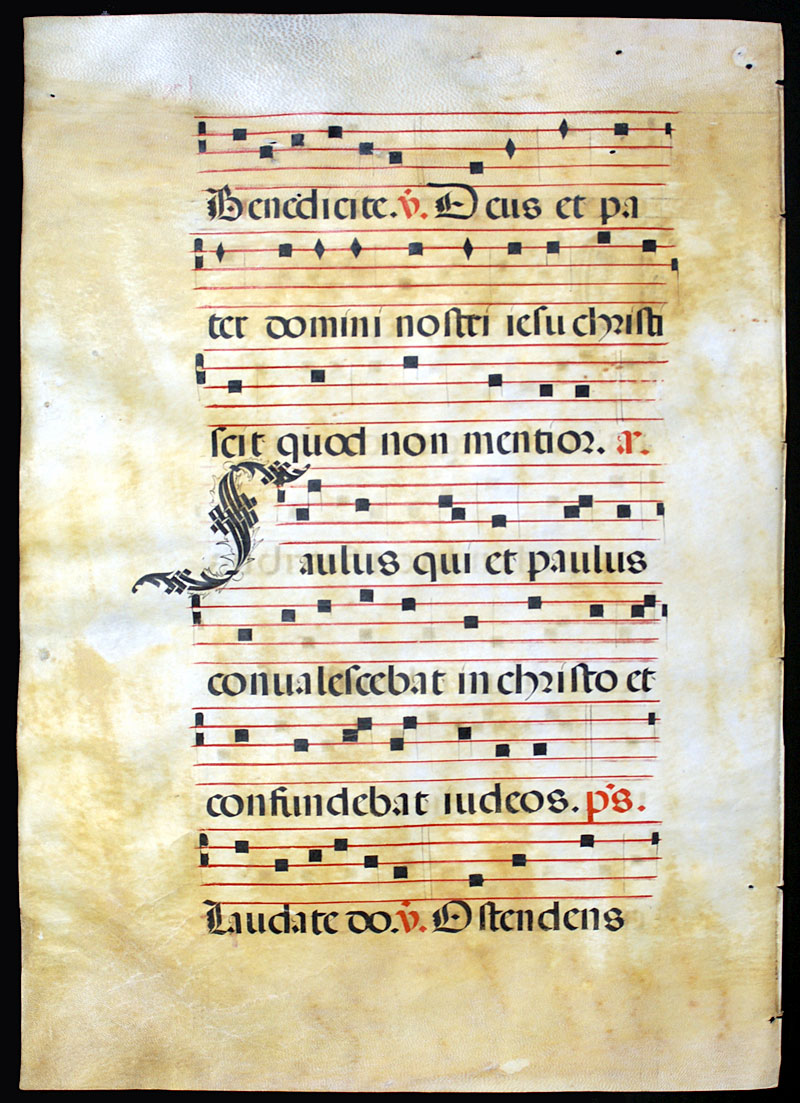 Benedicite. v̄. Deus et pa
ter domini nostri iesu christi
scit quod non mentior. a.
Saulus qui et paulus
conualescebat in christo et
confundebat iudeos. ps.
Laudate do. v̄. Ostendens